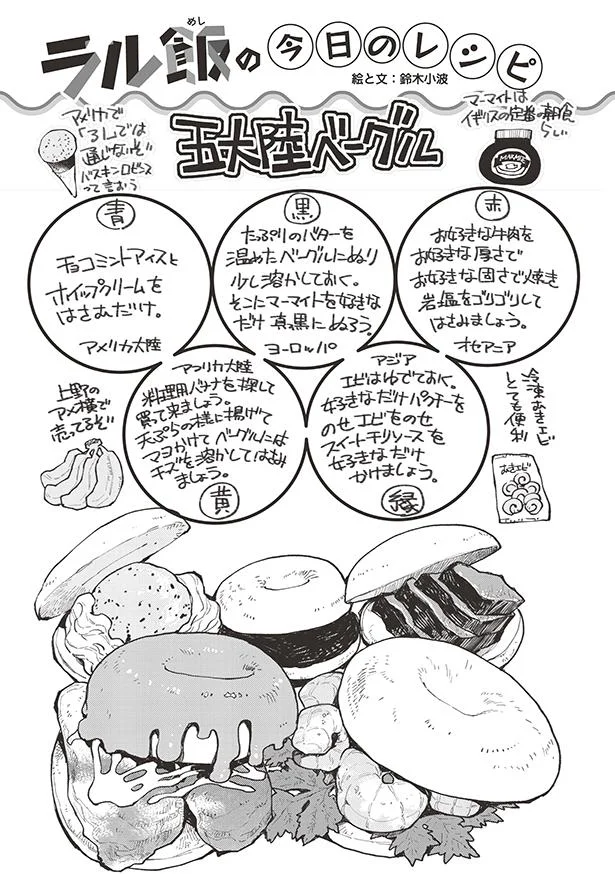 めし
ラル飯の今日のレシピ
絵と文：鈴木小波
アメリカで
「31」では
通じないぞ
バスキンロビンス
って言おう
五大陸ベーグル
マーマイトは
イギリスの定番の朝食
らしい
青
チョコミントアイスと
ホイップクリームを
はさむだけ。
アメリカ大陸
黒
たっぷりのバターを
温めたベーグルにぬり
少し溶かしておく。
そこにマーマイトを好きな
だけ真っ黒にぬろう。
ヨーロッパ
赤
お好きな牛肉を
お好きな厚さで
お好きな固さで焼き
岩塩をゴリゴリして
はさみましょう。
オセアニア
上野の
アメ横で
売ってるぞ
アフリカ大陸
料理用バナナを探して
買って来ましょう。
天ぷらの様に揚げて
マヨかけてベーグルには
チーズを溶かしてはさみ
ましょう。
黄
アジア
エビはゆでておく。
好きなだけパクチーを
のせエビをのせ
スイートチリソースを
好きなだけ
かけましょう。
緑
冷凍むきエビ
とても便利
むきエビ